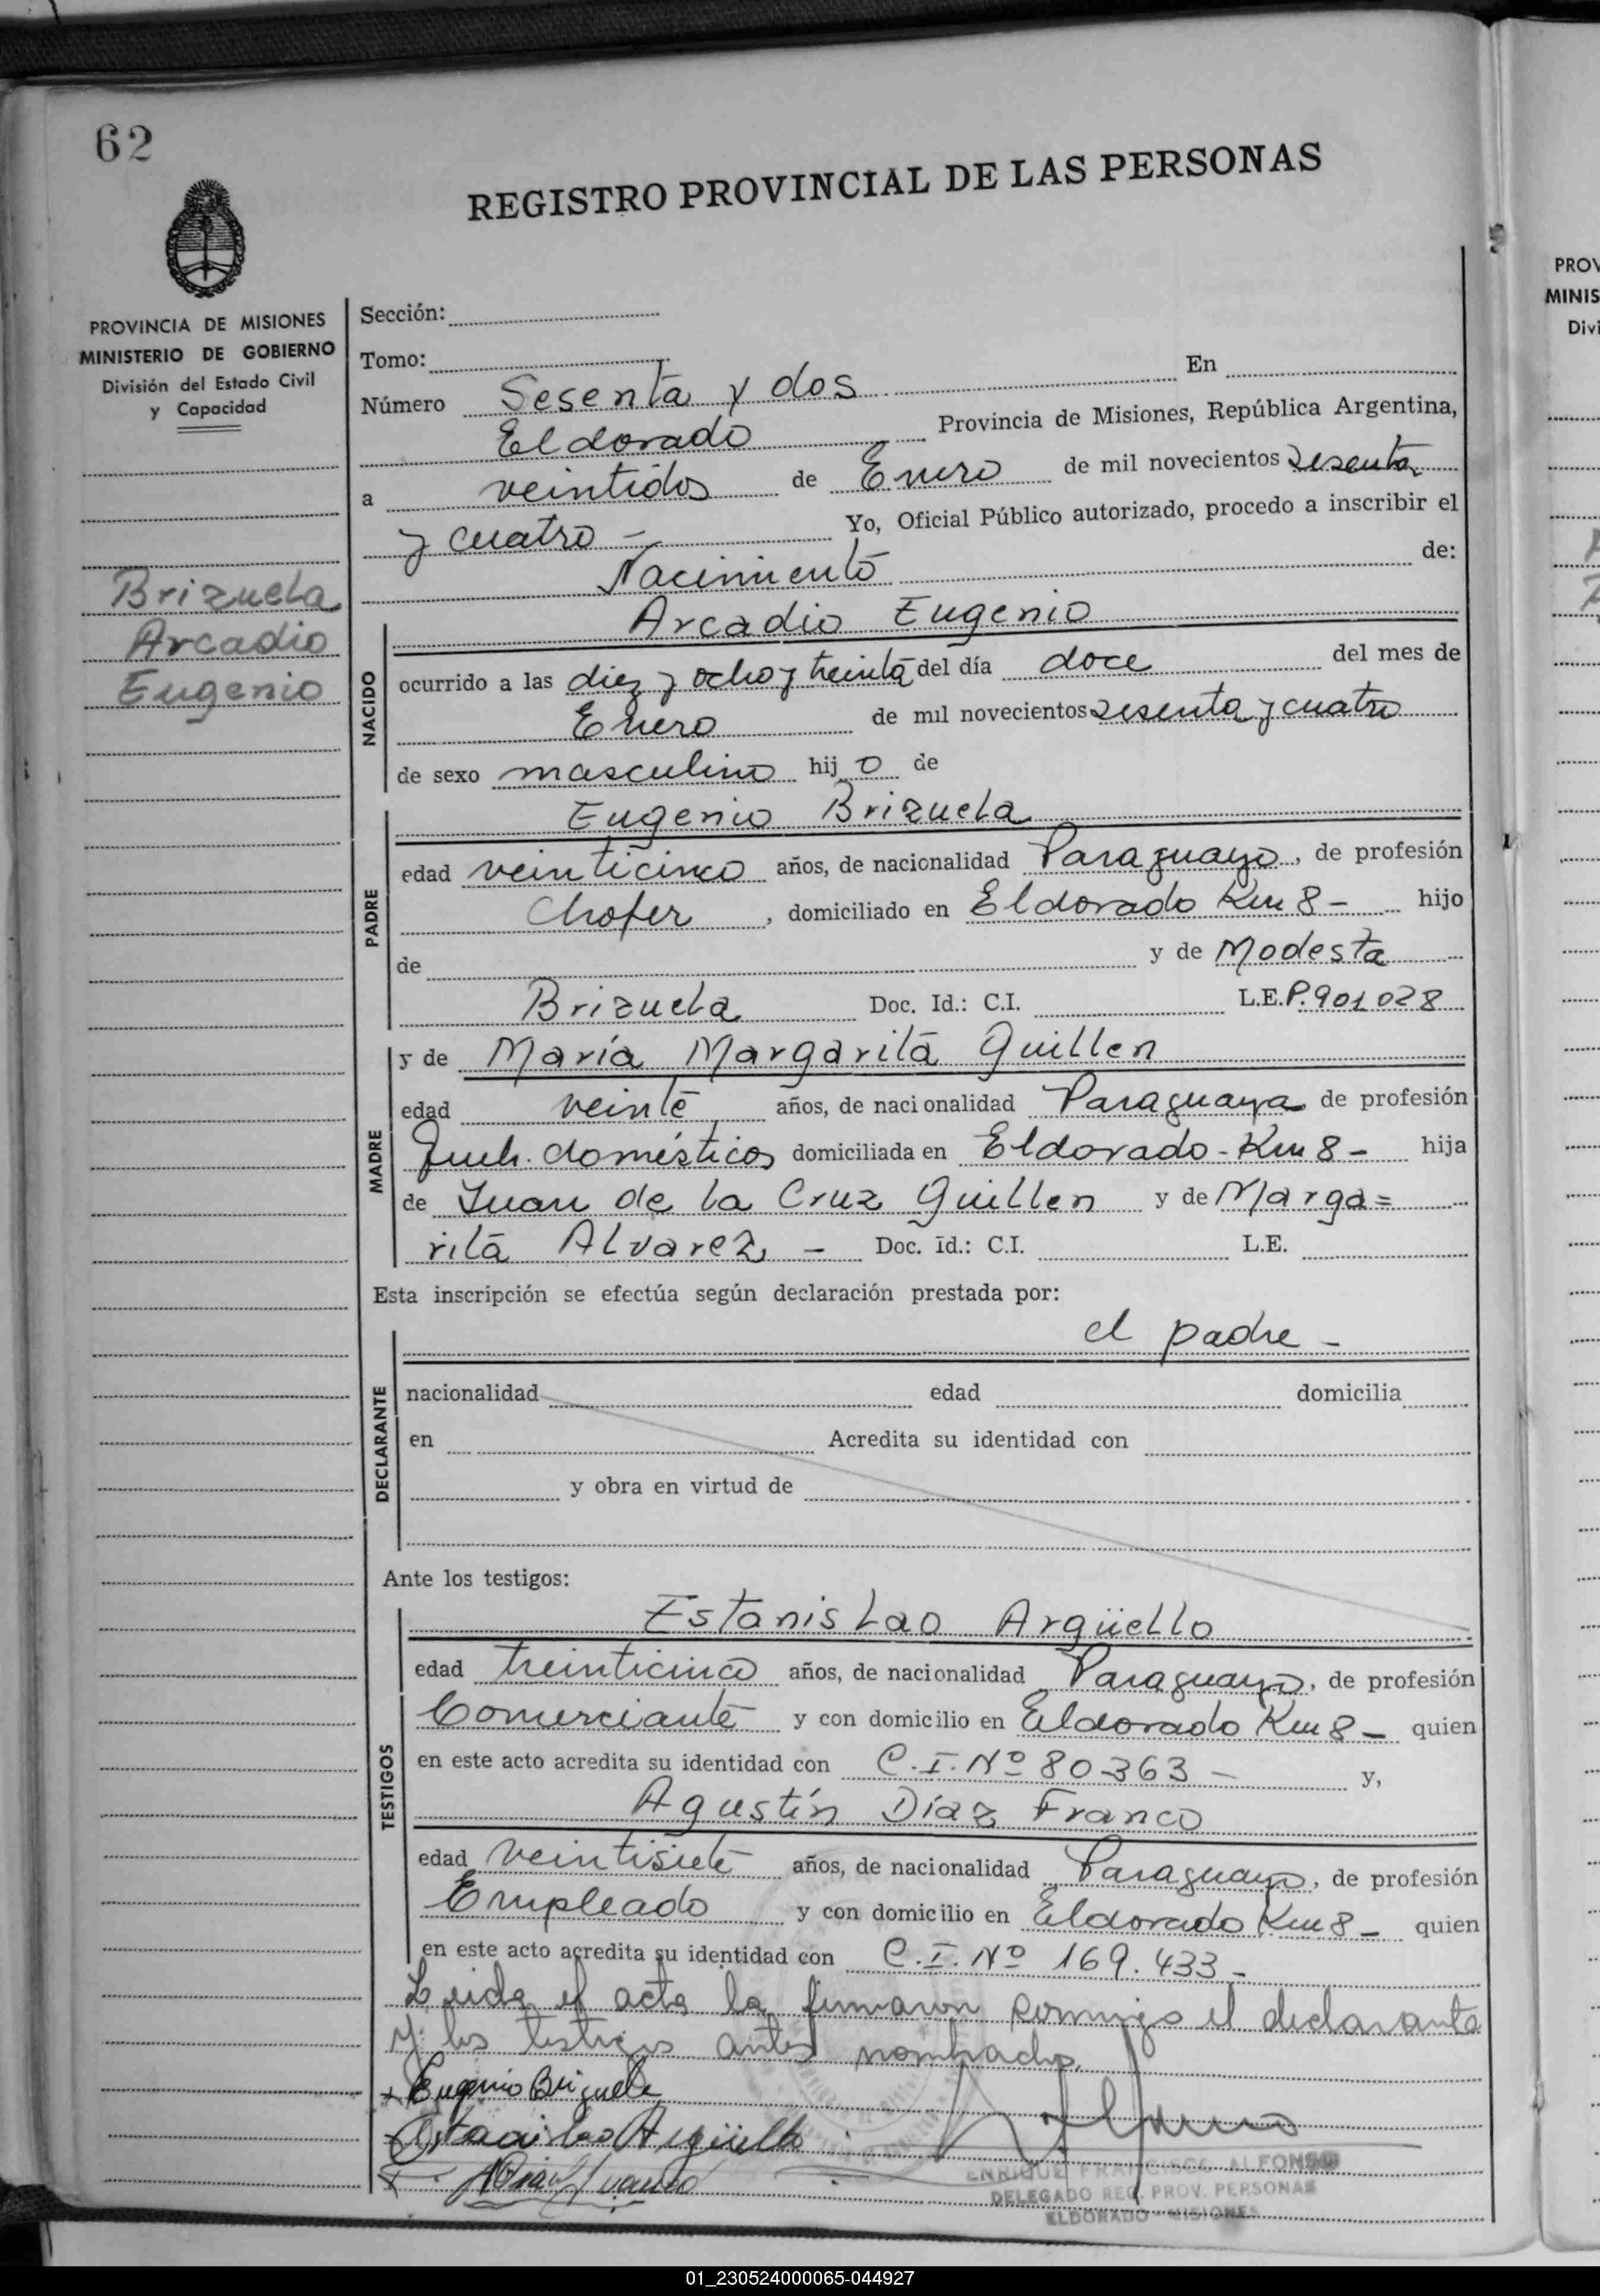 62
REGISTRO PROVINCIAL DE LAS PERSONAS
PROVINCIA DE MISIONES
MINISTERIO DE GOBIERNO
División del Estado Civil
y Capacidad
Brizuela
Arcadio
Eugenio
Sección:
Tomo:
Número Sesenta y dos En
Eldorado Provincia de Misiones, República Argentina,
a veintidos de Enero de mil novecientos sesenta
y cuatro - Yo, Oficial Público autorizado, procedo a inscribir el
Nacimiento de:
NACIDO
Arcadio Eugenio
ocurrido a las diez y ocho y treinta del día doce del mes de
Enero de mil novecientos sesenta y cuatro
de sexo masculino hij o de
PADRE
Eugenio Brizuela
edad veinticinco años, de nacionalidad Paraguayo, de profesión
Chofer, domiciliado en Eldorado Km 8 - hijo
de y de Modesta
Brizuela Doc. Id.: C.I. L.E. P. 901028
MADRE
y de María Margarita Guillen
edad veinte años, de nacionalidad Paraguaya de profesión
Queh. domésticos domiciliada en Eldorado - Km 8 - hija
de Juan de la Cruz Guillen y de Marga=
rita Alvarez - Doc. Id.: C.I. L.E.
Esta inscripción se efectúa según declaración prestada por:
DECLARANTE
el padre -
nacionalidad edad domicilia
en Acredita su identidad con
y obra en virtud de
Ante los testigos:
TESTIGOS
Estanislao Argüello
edad treinticinco años, de nacionalidad Paraguayo, de profesión
Comerciante y con domicilio en Eldorado Km 8 - quien
en este acto acredita su identidad con C.I. Nº 80363 - y,
Agustín Díaz Franco
edad veintisiete años, de nacionalidad Paraguayo, de profesión
Empleado y con domicilio en Eldorado Km 8 - quien
en este acto acredita su identidad con C.I. Nº 169.433 -
Leida el acta la firmaron conmigo el declarante
y los testigos antes nombrados.
x Eugenio Brizuela
Estanislao Argüello
ENRIQUE FRANCISCO ALFONSO
DELEGADO REG. PROV. PERSONAS
ELDORADO - MISIONES
PROV
MINIS
Divi
01_230524000065-044927